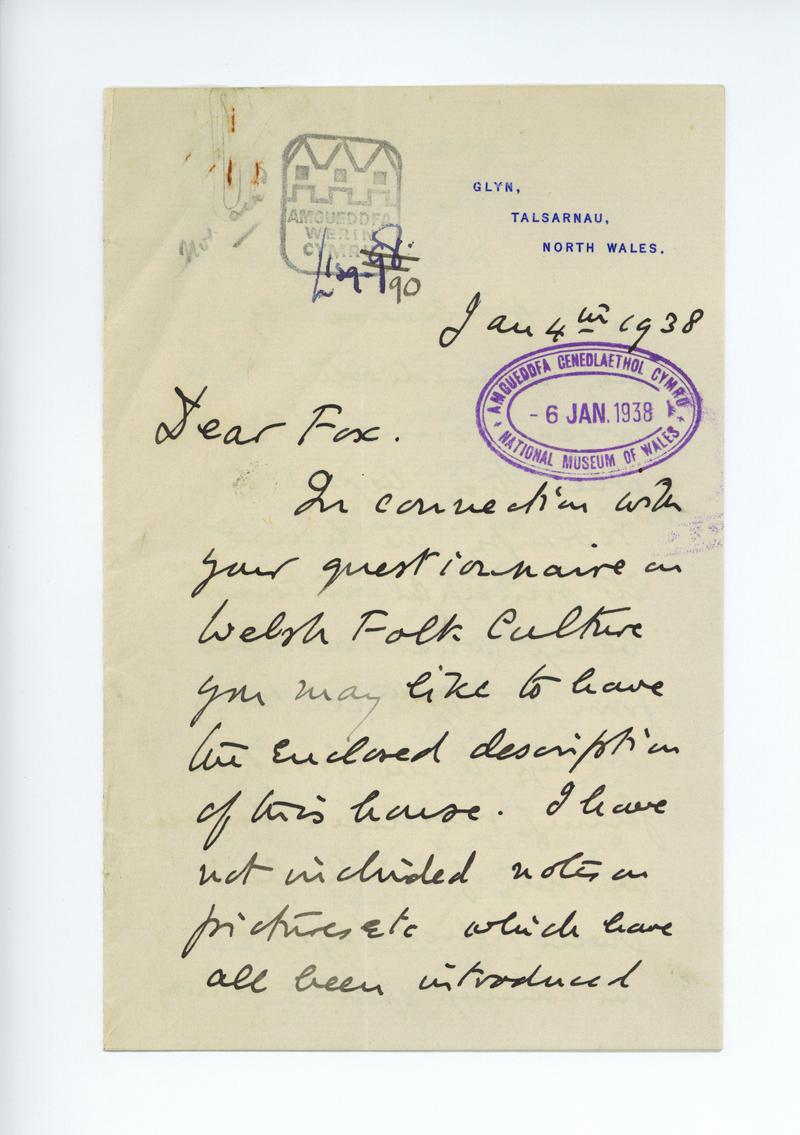 AMGUEDDFA
WERIN
CYMRU
90
GLYN,
TALSARNAU,
NORTH WALES.
Jan 4th 1938
AMGUEDDFA GENEDLAETHOL CYMRU
- 6 JAN. 1938
NATIONAL MUSEUM OF WALES
Dear Fox.
In connection with
your questionnaire on
Welsh Folk Culture
you may like to have
the enclosed description
of this house. I have
not included notes on
pictures etc which have
all been introduced